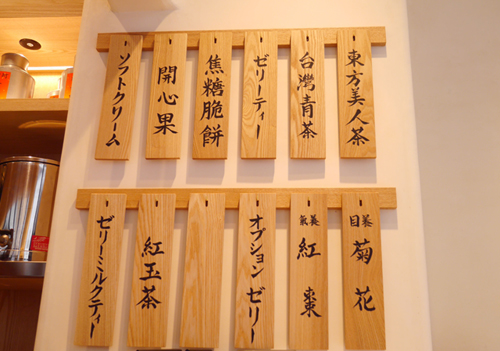 東方美人茶
台灣青茶
ゼリーティー
焦糖脆餅
開心果
ソフトクリーム
目養 菊花
氣養 紅棗
オプションゼリー
紅玉茶
ゼリーミルクティー